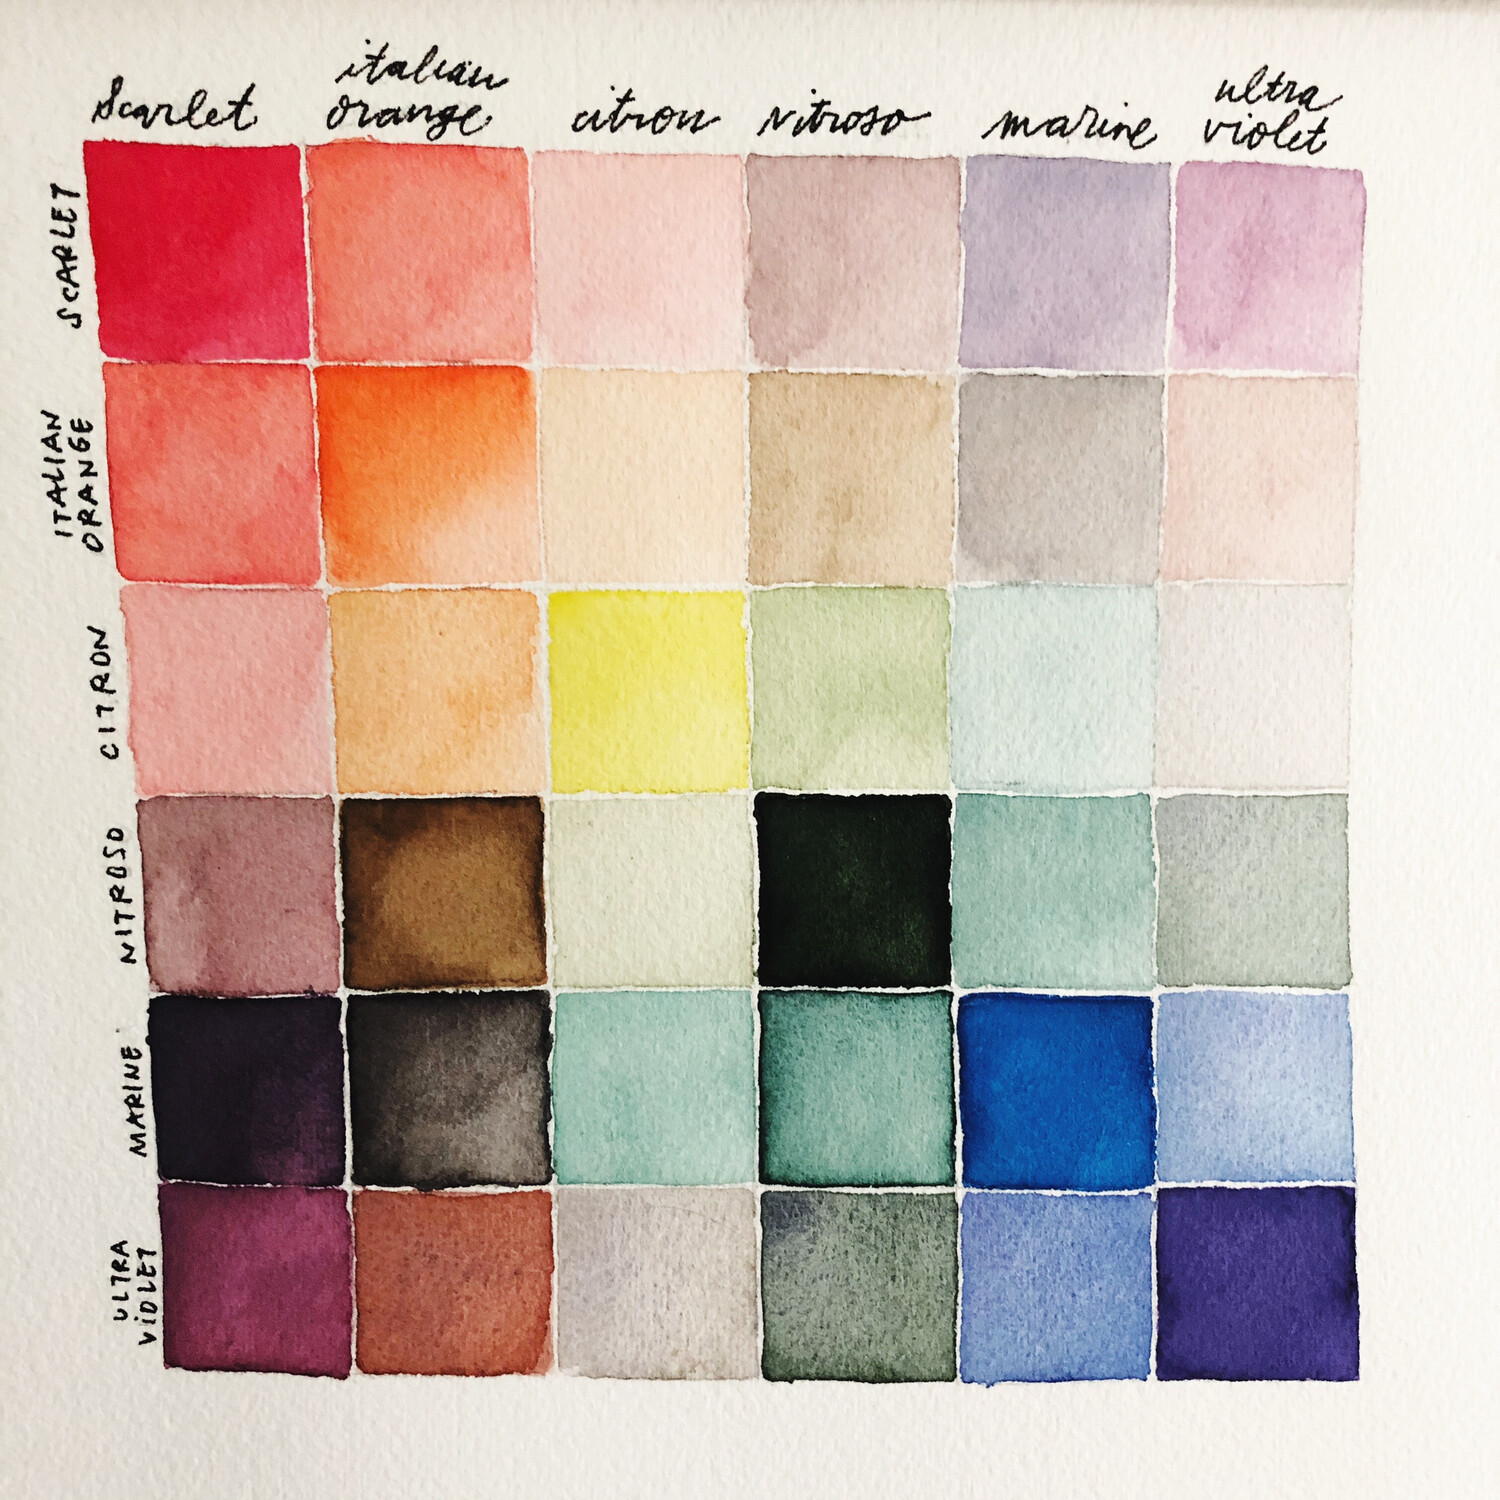 Scarlet
italian
orange
citron
nitroso
marine
ultra
violet
SCARLET
ITALIAN
ORANGE
CITRON
NITROSO
MARINE
ULTRA
ViOLET